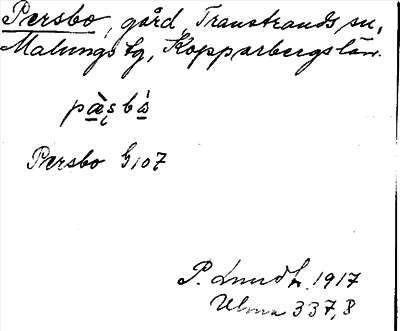 Persbo, gård, Transtrands sn,
Malungs tg, Kopparbergs län.
pàsbå
Persbo G107
P. Lundh. 1917
Ulma 337,8